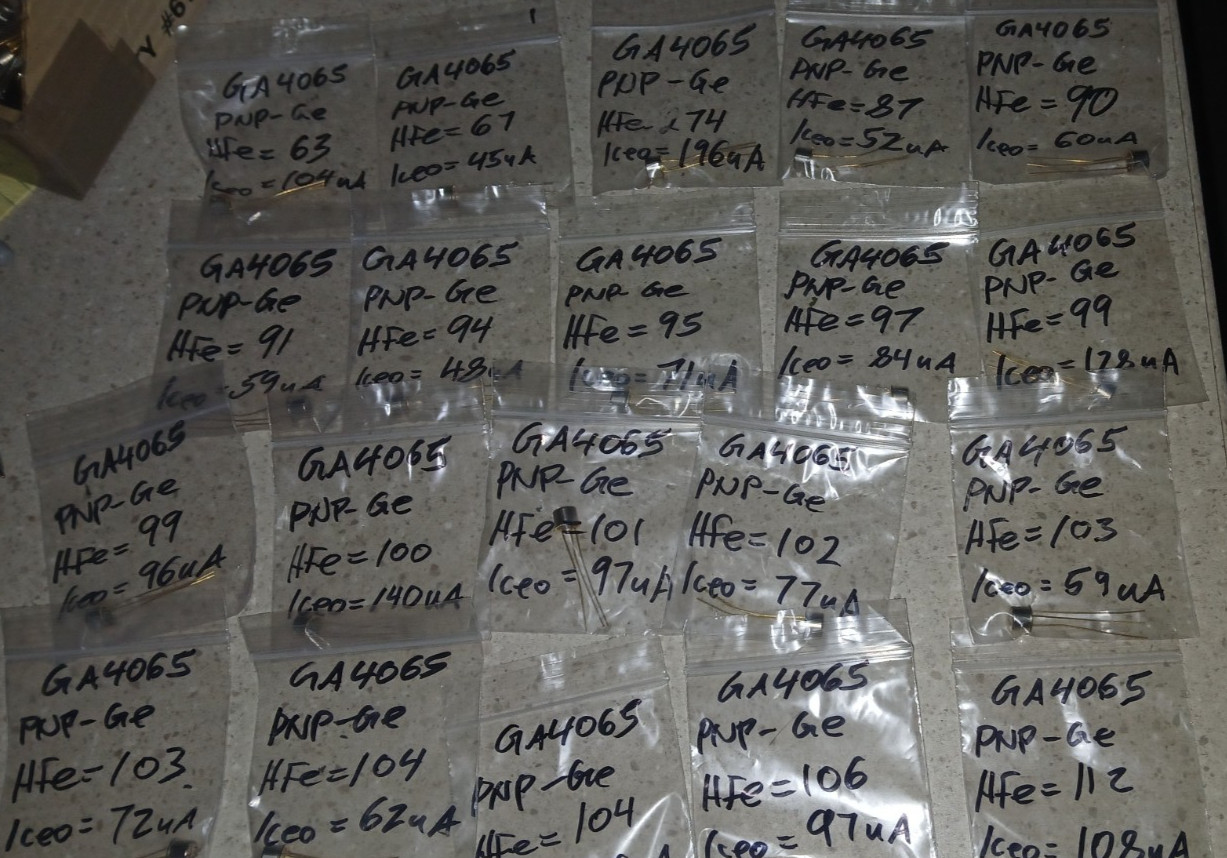 GA4065
PNP-Ge
HFe = 63
Iceo = 104uA
GA4065
PNP-Ge
HFe = 67
Iceo = 45uA
GA4065
PNP-Ge
HFe = 74
Iceo = 196uA
GA4065
PNP-Ge
HFe = 87
Iceo = 52uA
GA4065
PNP-Ge
HFe = 90
Iceo = 60uA
GA4065
PNP-Ge
HFe = 91
Iceo = 59uA
GA4065
PNP-Ge
HFe = 94
Iceo = 48uA
GA4065
PNP-Ge
HFe = 95
Iceo = 71uA
GA4065
PNP-Ge
HFe = 97
Iceo = 84uA
GA4065
PNP-Ge
HFe = 99
Iceo = 178uA
GA4065
PNP-Ge
HFe = 99
Iceo = 96uA
GA4065
PNP-Ge
HFe = 100
Iceo = 140uA
GA4065
PNP-Ge
HFe = 101
Iceo = 97uA
GA4065
PNP-Ge
HFe = 102
Iceo = 77uA
GA4065
PNP-Ge
HFe = 103
Iceo = 59uA
GA4065
PNP-Ge
HFe = 103
Iceo = 72uA
GA4065
PNP-Ge
HFe = 104
Iceo = 62uA
GA4065
PNP-Ge
HFe = 104
GA4065
PNP-Ge
HFe = 106
Iceo = 97uA
GA4065
PNP-Ge
HFe = 112
Iceo = 108uA